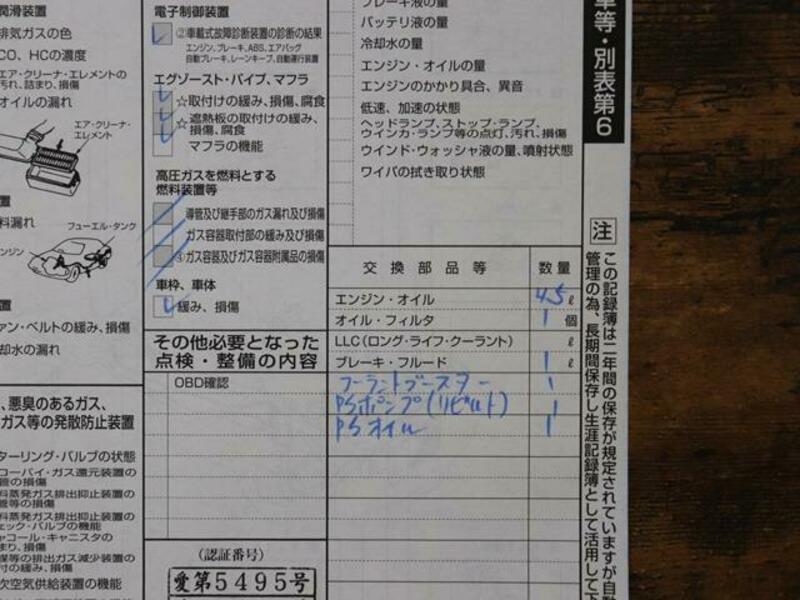 潤滑装置
排気ガスの色
CO、HCの濃度
エア・クリーナ・エレメントの
汚れ、詰まり、損傷
オイルの漏れ
エア・クリーナ・
エレメント
料漏れ
フューエル・タンク
エンジン
ァン・ベルトの緩み、損傷
却水の漏れ
、悪臭のあるガス、
ガス等の発散防止装置
ターリング・バルブの状態
コーバイ・ガス還元装置の
管の損傷
料蒸発ガス排出抑止装置の
管等の損傷
料蒸発ガス排出抑止装置の
ェック・バルブの機能
ャコール・キャニスタの
まり、損傷
等の排出ガス減少装置の
付の緩み、損傷
次空気供給装置の機能
電子制御装置
②車載式故障診断装置の診断の結果
エンジン、ブレーキ、ABS、エアバッグ
自動ブレーキ、レーンキープ、自動運行装置
エグゾースト・パイプ、マフラ
☆取付けの緩み、損傷、腐食
☆遮熱板の取付けの緩み、
損傷、腐食
マフラの機能
高圧ガスを燃料とする
燃料装置等
導管及び継手部のガス漏れ及び損傷
ガス容器取付部の緩み及び損傷
③ガス容器及びガス容器附属品の損傷
車枠、車体
緩み、損傷
その他必要となった
点検・整備の内容
OBD確認
(認証番号)
愛第5495号
ブレーキ液の量
バッテリ液の量
冷却水の量
エンジン・オイルの量
エンジンのかかり具合、異音
低速、加速の状態
ヘッドランプ、ストップ・ランプ、
ウインカ・ランプ等の点灯、汚れ、損傷
ウインド・ウォッシャ液の量、噴射状態
ワイパの拭き取り状態
交換部品等 数量
エンジン・オイル 4.5 ℓ
オイル・フィルタ 1 個
LLC(ロング・ライフ・クーラント) ℓ
ブレーキ・フルード 1 ℓ
クーラントブースター 1
PSポンプ(リビルト) 1
PSオイル 1
車等・別表第6
注
この記録簿は二年間の保存が規定されていますが自動
管理の為、長期間保存し生涯記録簿として活用して下